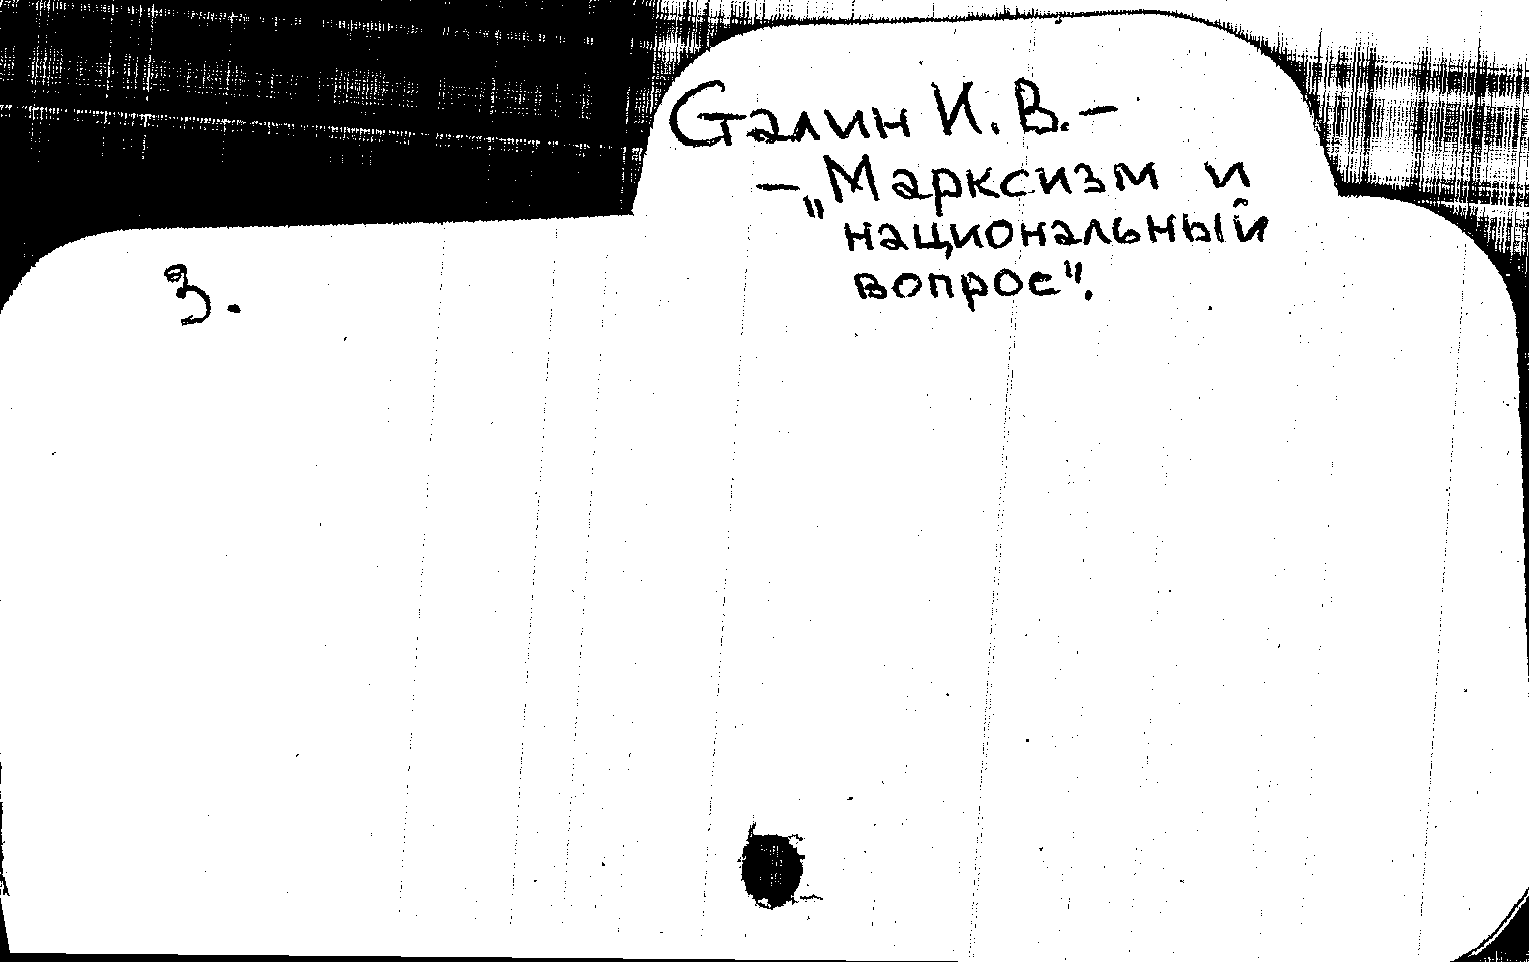 Сталин И. В. –
– „Марксизм и
национальный
вопрос".
3.